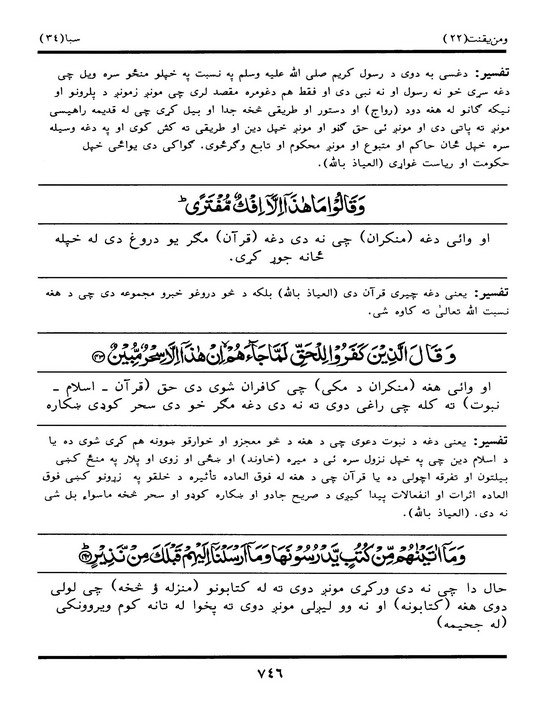 ومن يقنت(٢٢) سبا(٣٤)
تفسير: دغسې به دوی د رسول کريم صلی الله عليه وسلم په نسبت په خپلو منځو سره ويل چې
دغه سړی خو نه رسول او نه نبی دی او فقط هم دغومره مقصد لری چې مونږ زمونږ د پلرونو او
نيکه ګانو له هغه دود (رواج) او دستور او طريقې څخه جدا او بيل کړی چې له قديمه راهيسې
مونږ ته پاتې دی او مونږ ئې حق ګڼو او مونږ خپل دين او طريقې ته کش کوی او په دغه وسيله
سره خپل ځان حاکم او متبوع او مونږ محکوم او تابع وګرځوی. ګواکې دی يواځې خپل
حکومت او رياست غواړی (العياذ بالله).
وَقَالُوا مَا هٰذَآ اِلَّآ اِفْكٌ مُّفْتَرًى ؕ
او وائی دغه (منکران) چې نه دی دغه (قرآن) مګر يو دروغ دی له خپله
ځانه جوړ کړی.
تفسير: يعنی دغه چيرې قرآن دی (العياذ بالله) بلکه د څو دروغو خبرو مجموعه دی چې د هغه
نسبت الله تعالیٰ ته کاوه شی.
وَقَالَ الَّذِيْنَ كَفَرُوْا لِلْحَقِّ لَمَّا جَآءَهُمْ ۙ اِنْ هٰذَآ اِلَّا سِحْرٌ مُّبِيْنٌ ۝۴۳
او وائی هغه (منکران د مکې) چې کافران شوی دی حق (قرآن ـ اسلام ـ
نبوت) ته کله چې راغی دوی ته نه دی دغه مګر خو دی سحر کوډی ښکاره
تفسير: يعنی دغه د نبوت دعوی چې د هغه د څو معجزو او خوارقو ښوونه هم کړی شوی ده يا
د اسلام دين چې په خپل نزول سره ئې د ميړه (خاوند) او ښځی او زوی او پلار په منځ کښې
بيلتون او تفرقه اچولی ده يا قرآن چې د هغه له فوق العاده تأثيره د خلقو په زړونو کښې فوق
العاده اثرات او انفعالات پيدا کيږی د صريح جادو او ښکاره کوډو او سحر څخه ماسواء بل شی
نه دی. (العياذ بالله).
وَمَآ اٰتَيْنٰهُمْ مِّنْ كُتُبٍ يَّدْرُسُوْنَهَا وَمَآ اَرْسَلْنَآ اِلَيْهِمْ قَبْلَكَ مِنْ نَّذِيْرٍ ۝۴۴
حال دا چې نه دی ورکړی مونږ دوی ته له کتابونو (منزله ؤ څخه) چې لولی
دوی هغه (کتابونه) او نه وو ليږلی مونږ دوی ته پخوا له تانه کوم ويروونکی
(له جحيمه)
٧٤٦